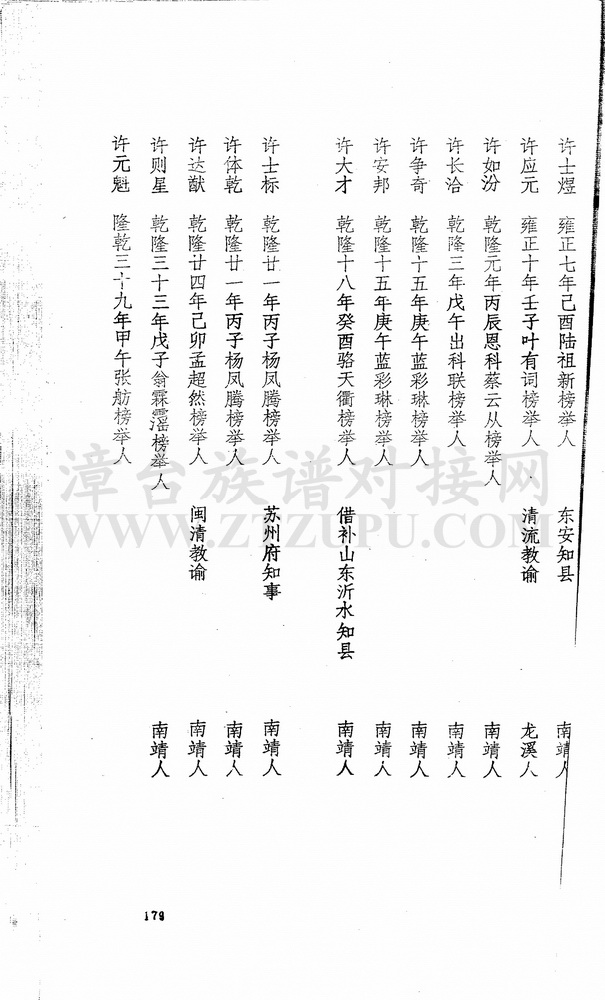 许士煜 雍正七年己酉陆祖新榜举人 东安知县 南靖人
许应元 雍正十年壬子叶有词榜举人 清流教谕 龙溪人
许如汾 乾隆元年丙辰恩科蔡云从榜举人 南靖人
许长治 乾隆三年戊午出科联榜举人 南靖人
许争奇 乾隆十五年庚午蓝彩琳榜举人 南靖人
许安邦 乾隆十五年庚午蓝彩琳榜举人 南靖人
许大才 乾隆十八年癸酉骆天衢榜举人 借补山东沂水知县 南靖人
许士标 乾隆廿一年丙子杨凤腾榜举人 苏州府知事 南靖人
许体乾 乾隆廿一年丙子杨凤腾榜举人 南靖人
许达猷 乾隆廿四年己卯孟超然榜举人 闽清教谕 南靖人
许则星 乾隆三十三年戊子翁霖霪榜举人 南靖人
许元魁 隆乾三十九年甲午张舫榜举人
179
漳台族谱对接网
WWW.ZTZUPU.COM